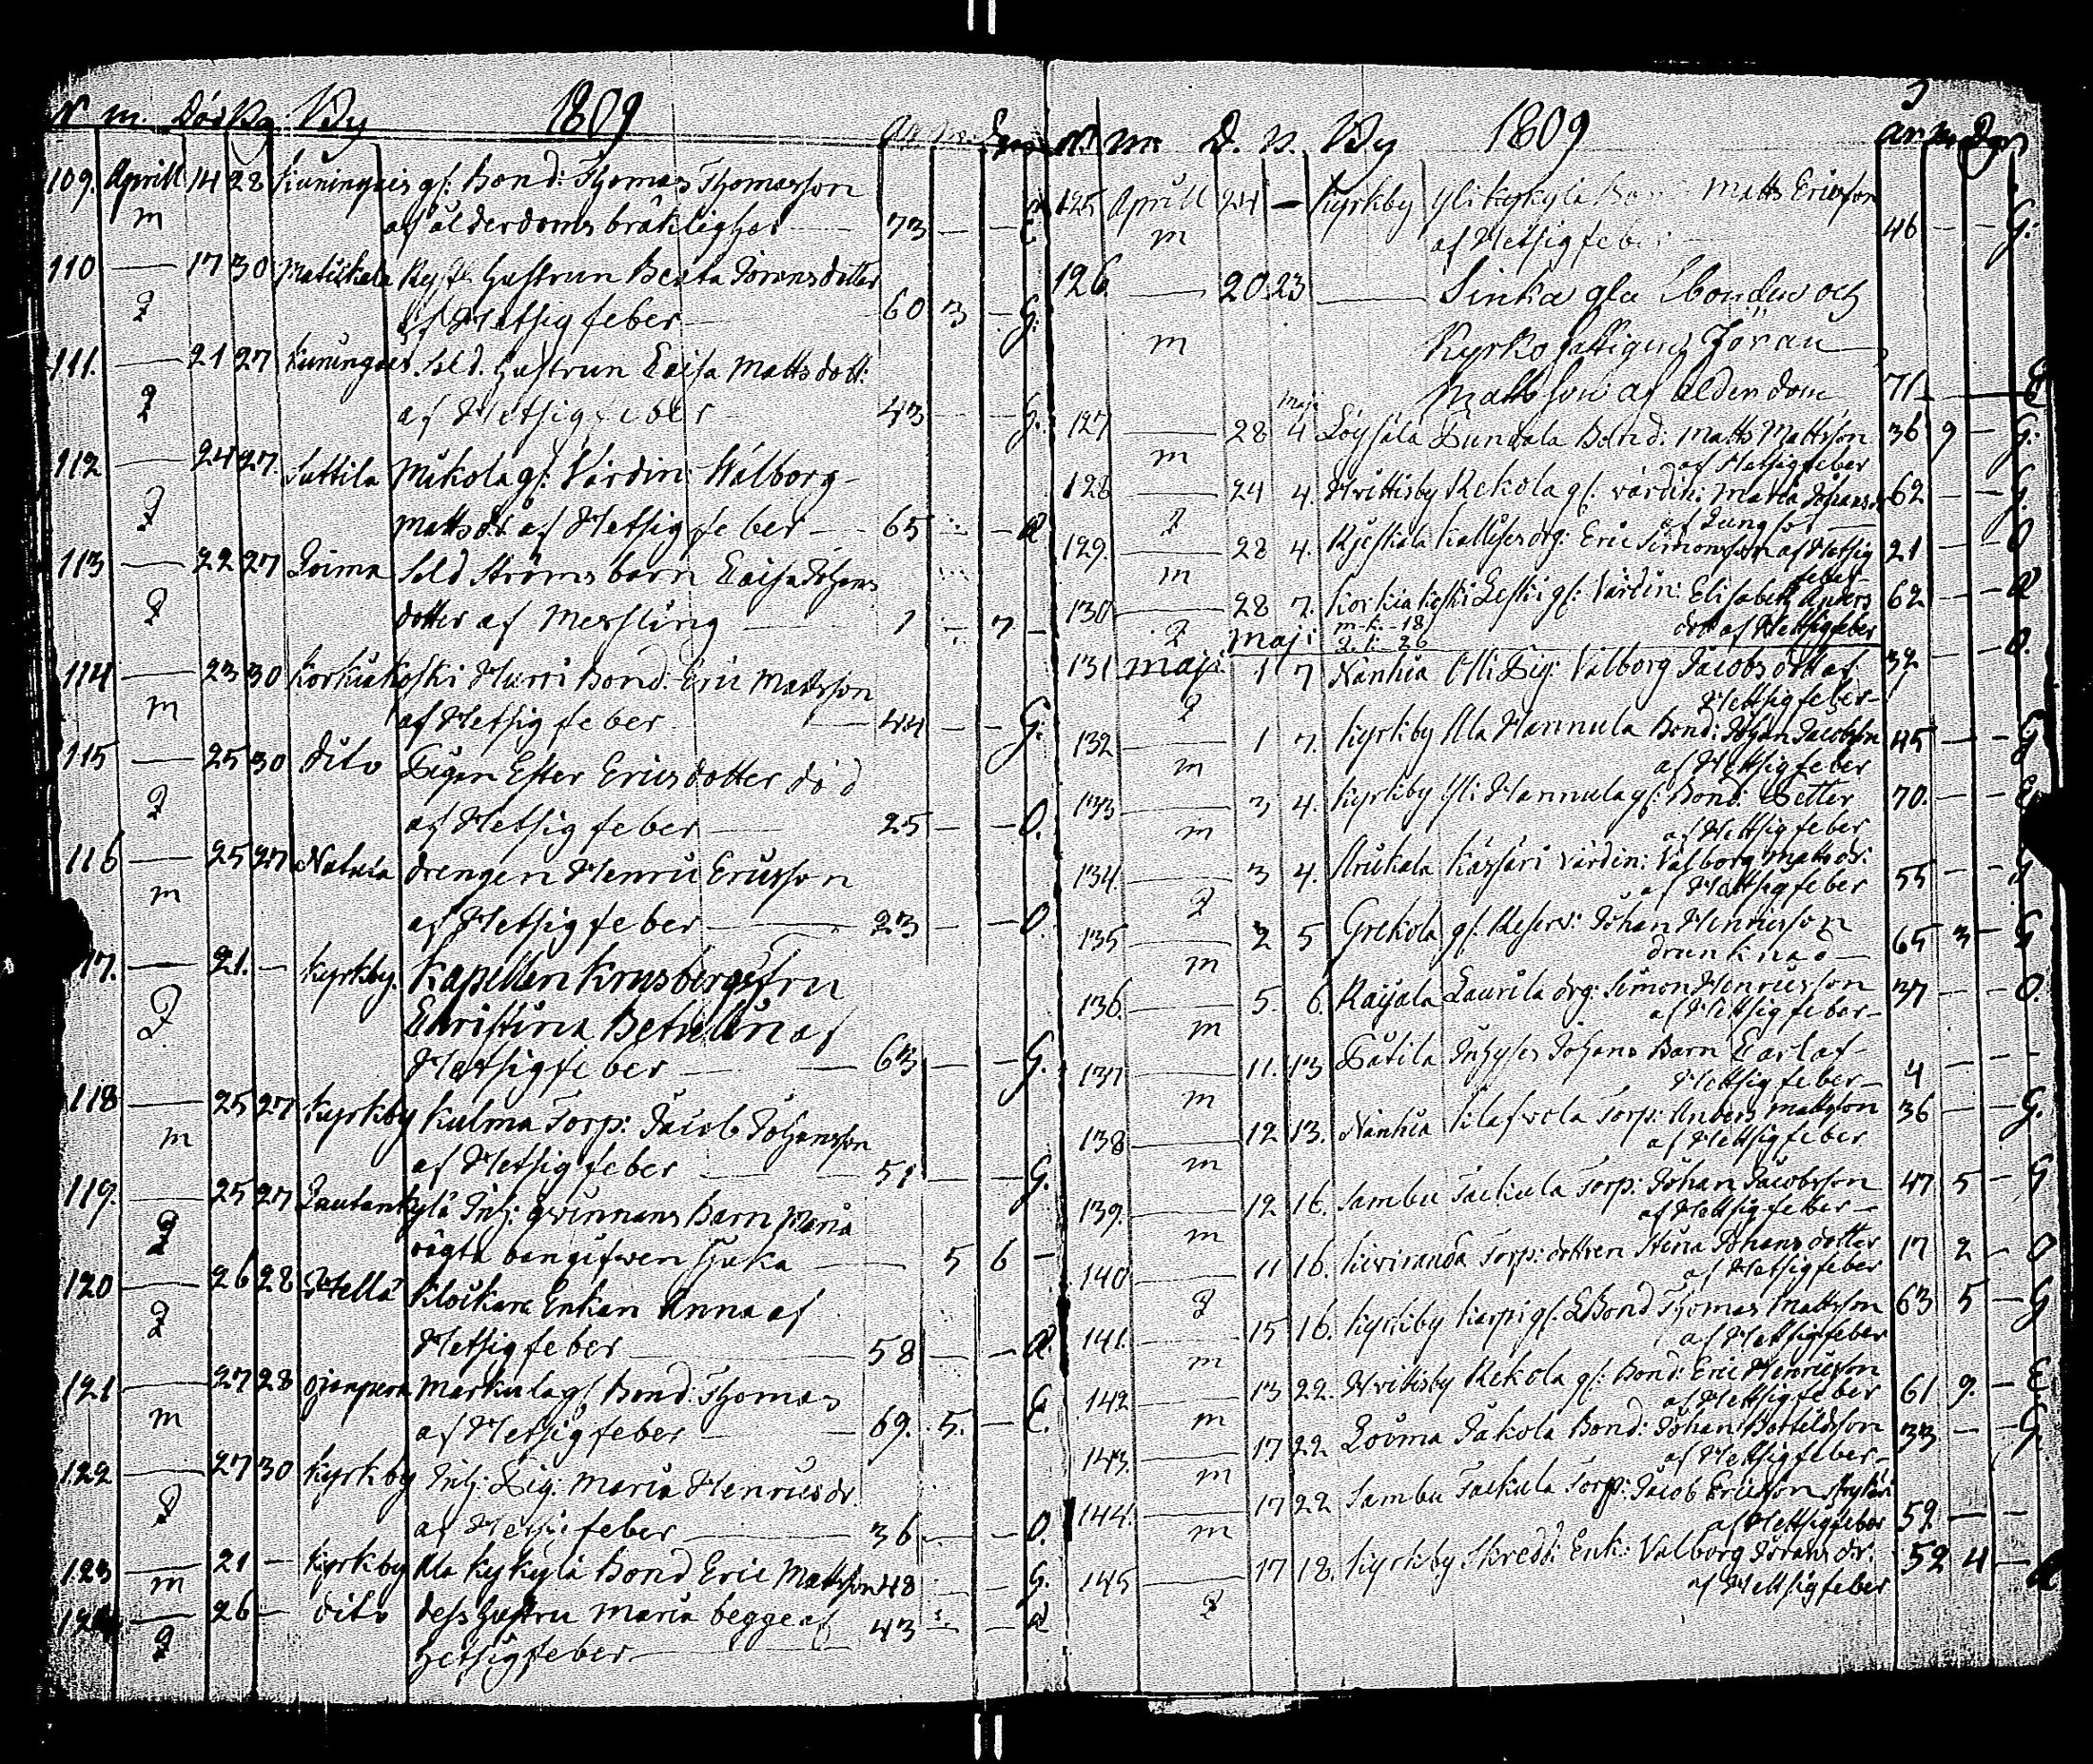 N m. Död Bg. By 1809 år m. d
109. Aprill 14 28 Kuningois gf: Bond: Thomas Thomasson
m af ålderdoms bräklighet — 73 — — E
110 — 17 30 Matickala Ryst. hustrun Beata Göransdotter
af Hetsig feber — 60 3 — G:
111. — 21 27 Kuningois Sold. hustrun Caisa Mattsdott:
af Hetsig feber 43 — — G.
112 — 24 27. Suttila Mikola gf: Värdin: Walborg
Mattsdr. af Hetsig feber — 65 — — Æ
113 — 22 27 Loima Sold Ströms barn Caisa Johans
dotter af Messling — 1 — 7 —
114 — 23 30 Korkiakoski Hurri Bond. Eric Mattsson
m af Hetsig feber — 44 — — G:
115 — 25 30 dito Pigan Ester Ericsdotter död
af Hetsig feber — 25 — — O.
116 — 25 27 Nohkia drengen Henric Ericsson
m af Hetsig feber — 23 — — O.
117. — 21. — Kyrkby. Kapellan Krusbergs fru
Christina Betulin af
Hetsigfeber — 63 — — G.
118 — 25 27 Kyrkby Kulma Torp: Jacob Johansson
m af Hetsig feber — 51 — — G.
119. — 25 27 Lautenkylä Inh: qvinnans Barn Maria
oägta oangifwen sjuka — 5 6 —
120 — 26 28 Hellä Klockare Enkan Anna af
Hetsigfeber — 58 — — Æ.
121 — 27 28 Ojanpera Markula gf. Bond: Thomas
m af Hetsigfeber — 69. 5. — E.
122 — 27 30 Kyrkby Inh: Pig: Maria Henricsdr.
af Hetsigfeber — 36 — — O.
123 — 21 — Kyrkby Ala kykylä Bond Eric Mattsson 48 — — G.
m
124 — 26 — dito dess hustru Maria begge af 43 — — Æ
hetsigfeber —
N: m: D. B. By 1809 år m Dgr
125 Aprill 24 — Kyrkby Yli kykylä Matts Ericsson
m af Hetsigfeber 46 — — G:
126 — 20 23 — Sinka gla Ebonden och
m Kyrkofattigens Jöran
Mattsson af ålderdom 71 — — E
maji
127 — 28 4 Löysälä Bond: Matts Mattsson 36 9 — G:
m af Hetsigfeber
128 — 24 4. Hvittisby Rekola gf. värdin: Maria Johansd: 62 — — G.
af Lungsot —
129. — 28 4. Rjeskala drg: Eric Simonsson af Hetsig 21 — — O
m feber —
130 — 28 7. Korkiakoski Leski gf: Värdin: Elisabeth Anders 62 — — Æ
maji m.k. 18 dott af Hettsigfeber
q.k. 26
131 Maji 1 7 Nanhia Olli Pig: Valborg Jacobsdott af 32. — — O.
Hettsigfeber —
132 — 1 7. Kyrkby Ala Hannula Bond: Johan Jacobsson 45 — — G
m af Hettsigfeber
133 — 3 4. Kyrkby Yli Hannula gf: Bond: Petter 70. — — E
m af Hettsigfeber
134. — 3 4. Arukala Kässäri värdin: Valborg Mattsdr: 55 — —
af Hettsigfeber
135 — 2 5 Grekola gf. Reserv: Johan Henricsson 65 3 — G
m drunknad —
136. — 5. 6. Raijala Laurila drg: Simon Henricsson 37 — — O.
m af Hettsigfeber —
137 — 11. 13 Pätila Inhyses Johans Barn Carl af 4 — —
m Hettsigfeber —
138 — 12 13. Nanhia Torp: Anders Mattsson 36 — — G.
m af Hettsigfeber
139. — 12 16. Sambu Torp: Johan Jacobsson 47 5 — G
m af Hettsigfeber —
140 — 11 16. Kiviranda Torp: dottren Stina Johansdotter 17 2 — O
af Hettsigfeber
141. — 15 16. Kyrkby Karpi gf. EBond Thomas Mattsson 63 5 — G
m af Hettsigfeber
142 — 13 22. Hvittisby Rekola gf: Bond: Eric Henricsson 61 9. — E
m af Hettsigfeber
143. — 17 22 Loima Jakola Bond: Johan Bertilsson 33 — — G.
m af Hettsigfeber —
144. — 17 22 Sambu Torp: Jacob Ericsson 59. — —
m af Hettsigfeber
145 — 17 18. Kyrkby Skredd: Enk: Valborg Göransdr. 52 4 — Æ
af Hettsigfeber